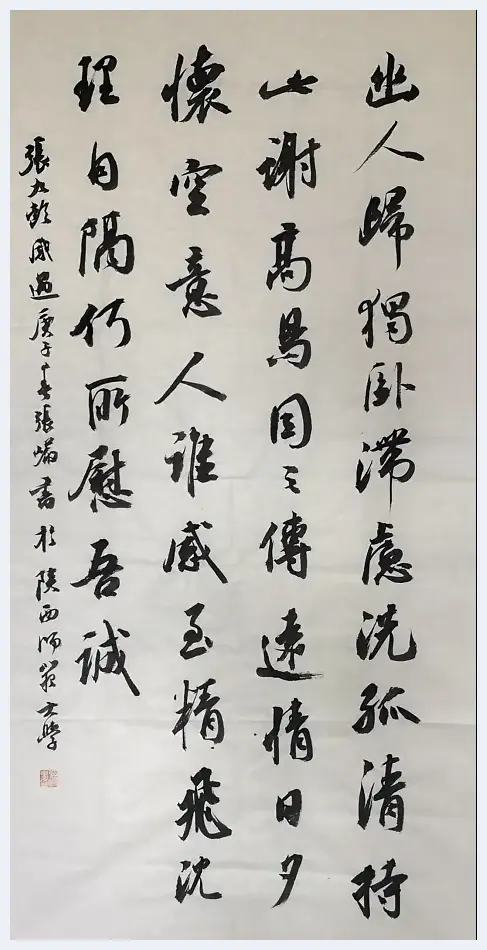 幽人歸獨卧滯慮洗孤清持
此謝高鳥因之傳遠情日夕
懷空意人誰感至精飛沈
理自隔何所慰吾誠
張九齡感遇庚子春張書於陝西師範大學